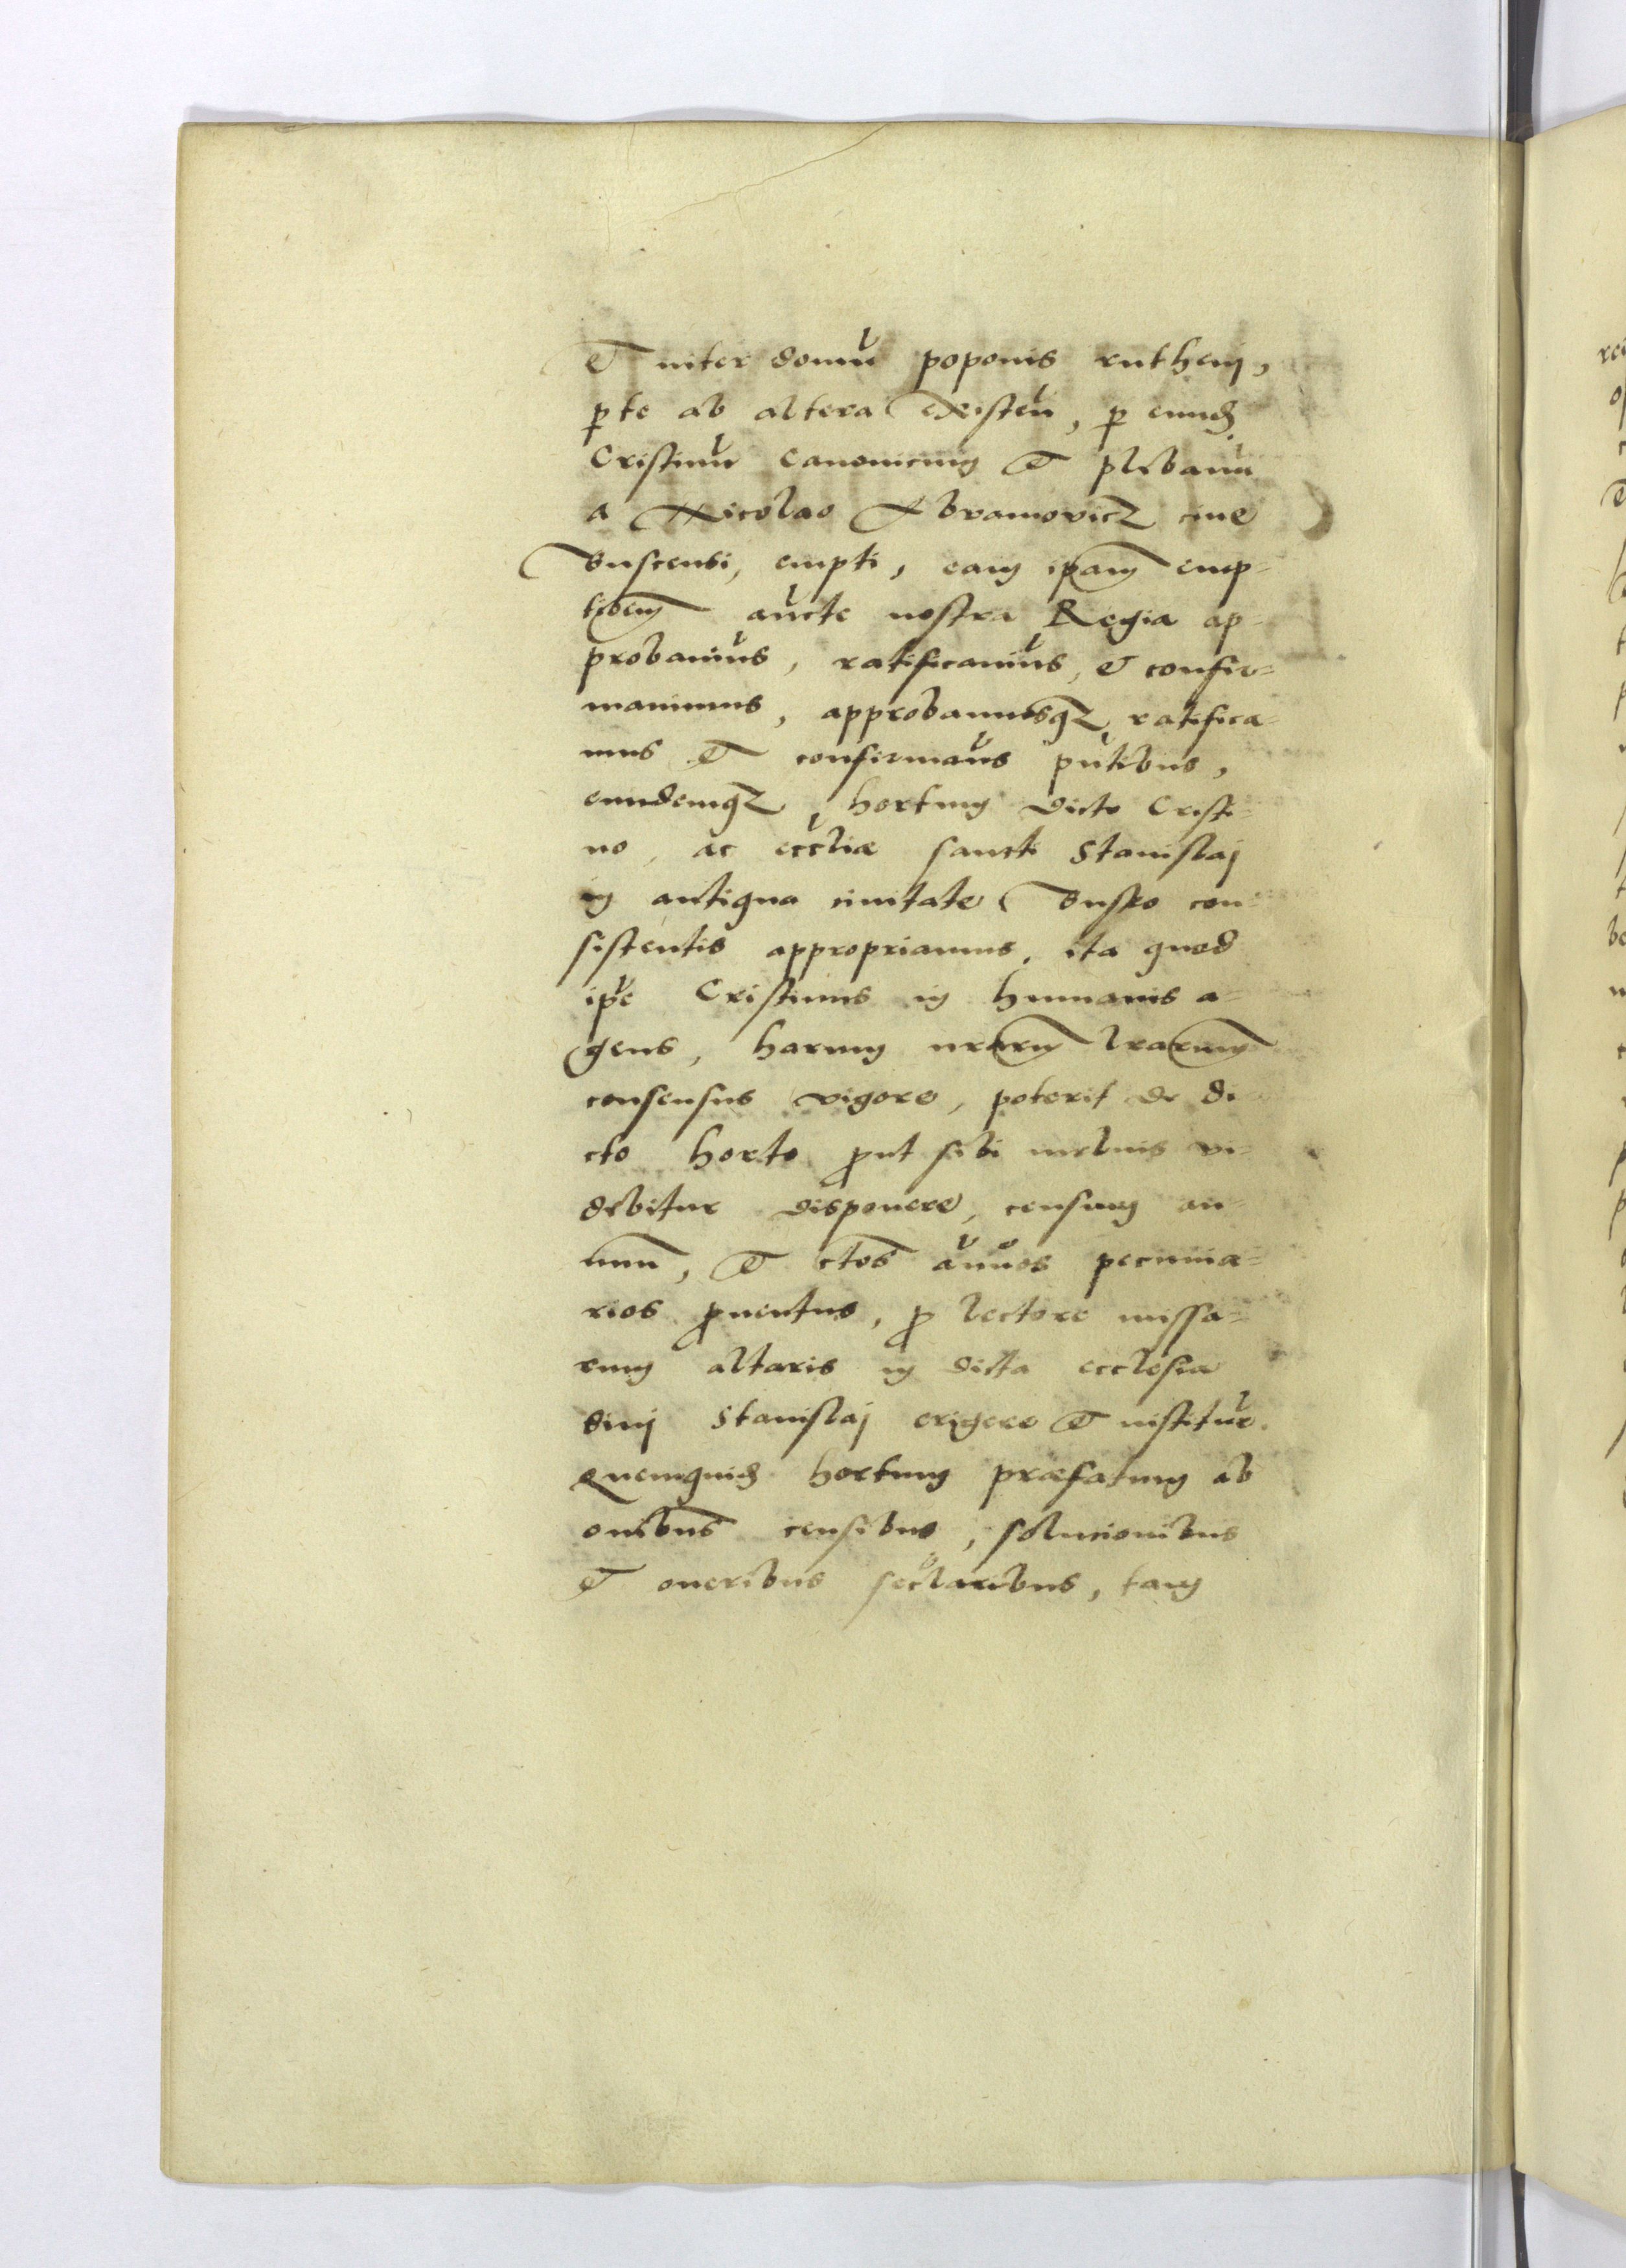 Et inter domũ poponis rutheni,
ꝑte ab altera existeñ, ꝑ eund̃
Cristinũ canonicum Et plebanũ
a Nicolao Abramovicz ciue
Buscensi, empti, eam ip̃am emp=
tiõem aucte nostra Regia ap=
probauim̃us, ratificauim̃us, Et confir=
mauimus, approbamusqꝫ ratifica=
mus Et confirmam̃us p̃ntibus,
eundemqꝫ, hortum dicto Cristi=
no, ac eccl̃iæ sancti Stanislaj
in antiqua ciuitate Busko con=
sistentis appropriamus, ita quod
ip̃e Cristinus in humanis a=
gens, harum nr̃arum lr̃arum
consensus vigore, poterit de di=
cto horto ꝓut sibi melius vi=
debitur disponere, censum an=
nuũ, Et ctos añuos pecunia=
rios ꝓuentus, ꝓ lectore missa=
rum altaris in dicta ecclesia
diuj Stanislaj erigere Et institũe.
Quemquid̃ hortum præfatum ab
oñibus censibus, solucionibus
Et oneribus sec̃laribus, tam